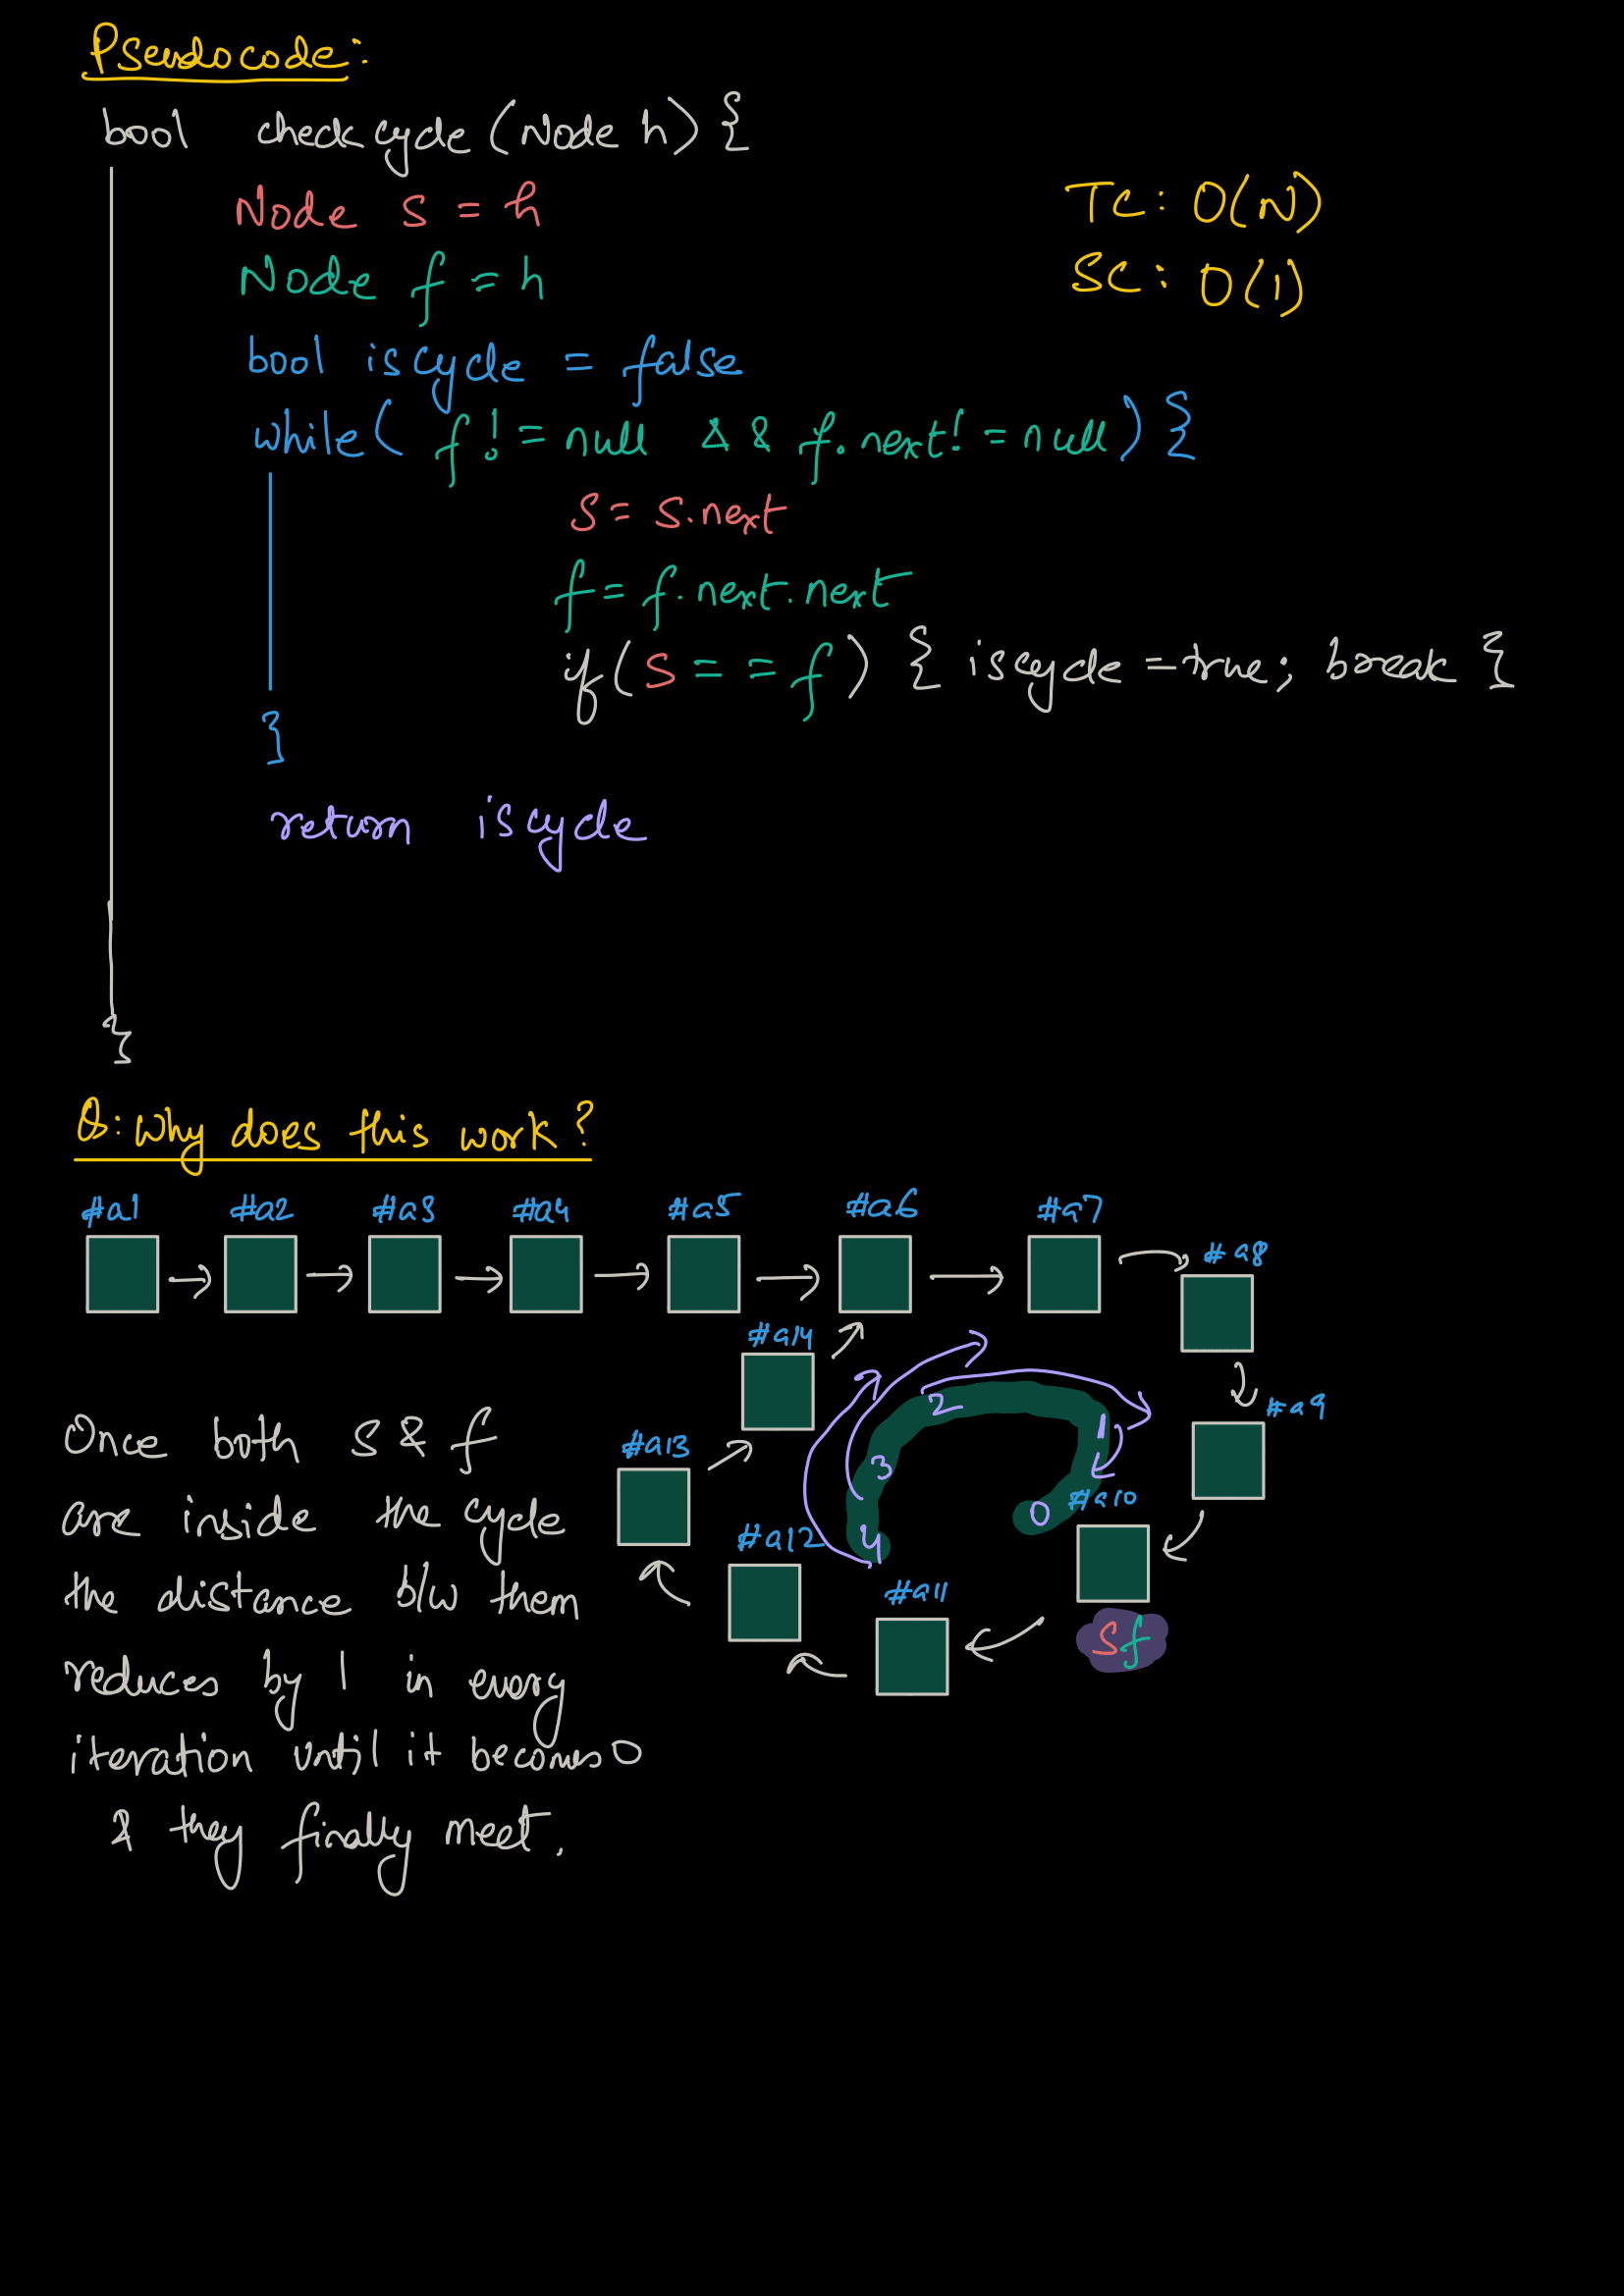 Pseudocode:
bool checkcycle (Node h) {
Node s = h
TC: O(N)
Node f = h
SC: O(1)
bool iscycle = false
while( f != null && f.next != null ) {
s = s.next
f = f.next.next
if( s == f ) { iscycle = true; break {
}
return iscycle
}
Q: Why does this work?
#a1 #a2 #a3 #a4 #a5 #a6 #a7
#a8
#a14
#a9
#a13
#a10
#a12
#a11
2
1
3
0
4
s f
Once both s & f
are inside the cycle
the distance b/w them
reduces by 1 in every
iteration until it becomes 0
& they finally meet.